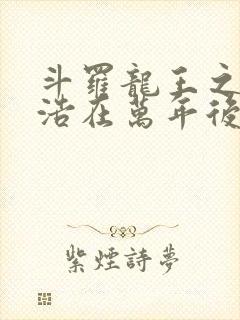 斗羅龍王之
浩在萬年後
紫煙詩夢